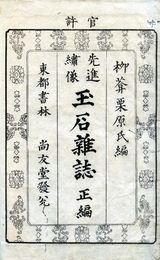 官許
柳菴栗原氏編
先進
繍像
玉石雜誌 正編
東都書林 尚友堂發兌